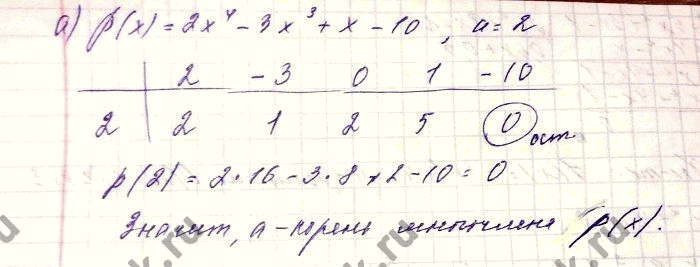 а) p(x) = 2x⁴ - 3x³ + x - 10, a = 2
2 -3 0 1 -10
2 2 1 2 5 0 ост.
p(2) = 2·16 - 3·8 + 2 - 10 = 0
Значит, a - корень многочлена p(x).